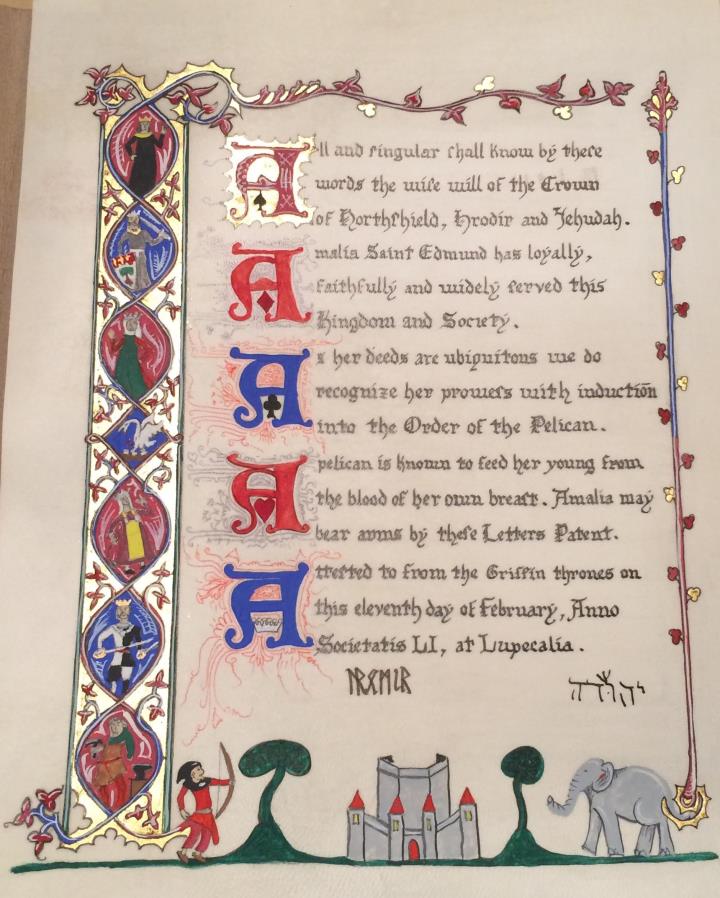 All and singular shall know by these
words the wise will of the Crown
of Northshield, Hrodir and Jehudah.
Amalia Saint Edmund has loyally,
faithfully and widely served this
Kingdom and Society.
As her deeds are ubiquitous we do
recognize her prowess with induction
into the Order of the Pelican.
A pelican is known to feed her young from
the blood of her own breast. Amalia may
bear arms by these Letters Patent.
Attested to from the Griffin thrones on
this eleventh day of February, Anno
Societatis LI, at Lupecalia.
יהודה